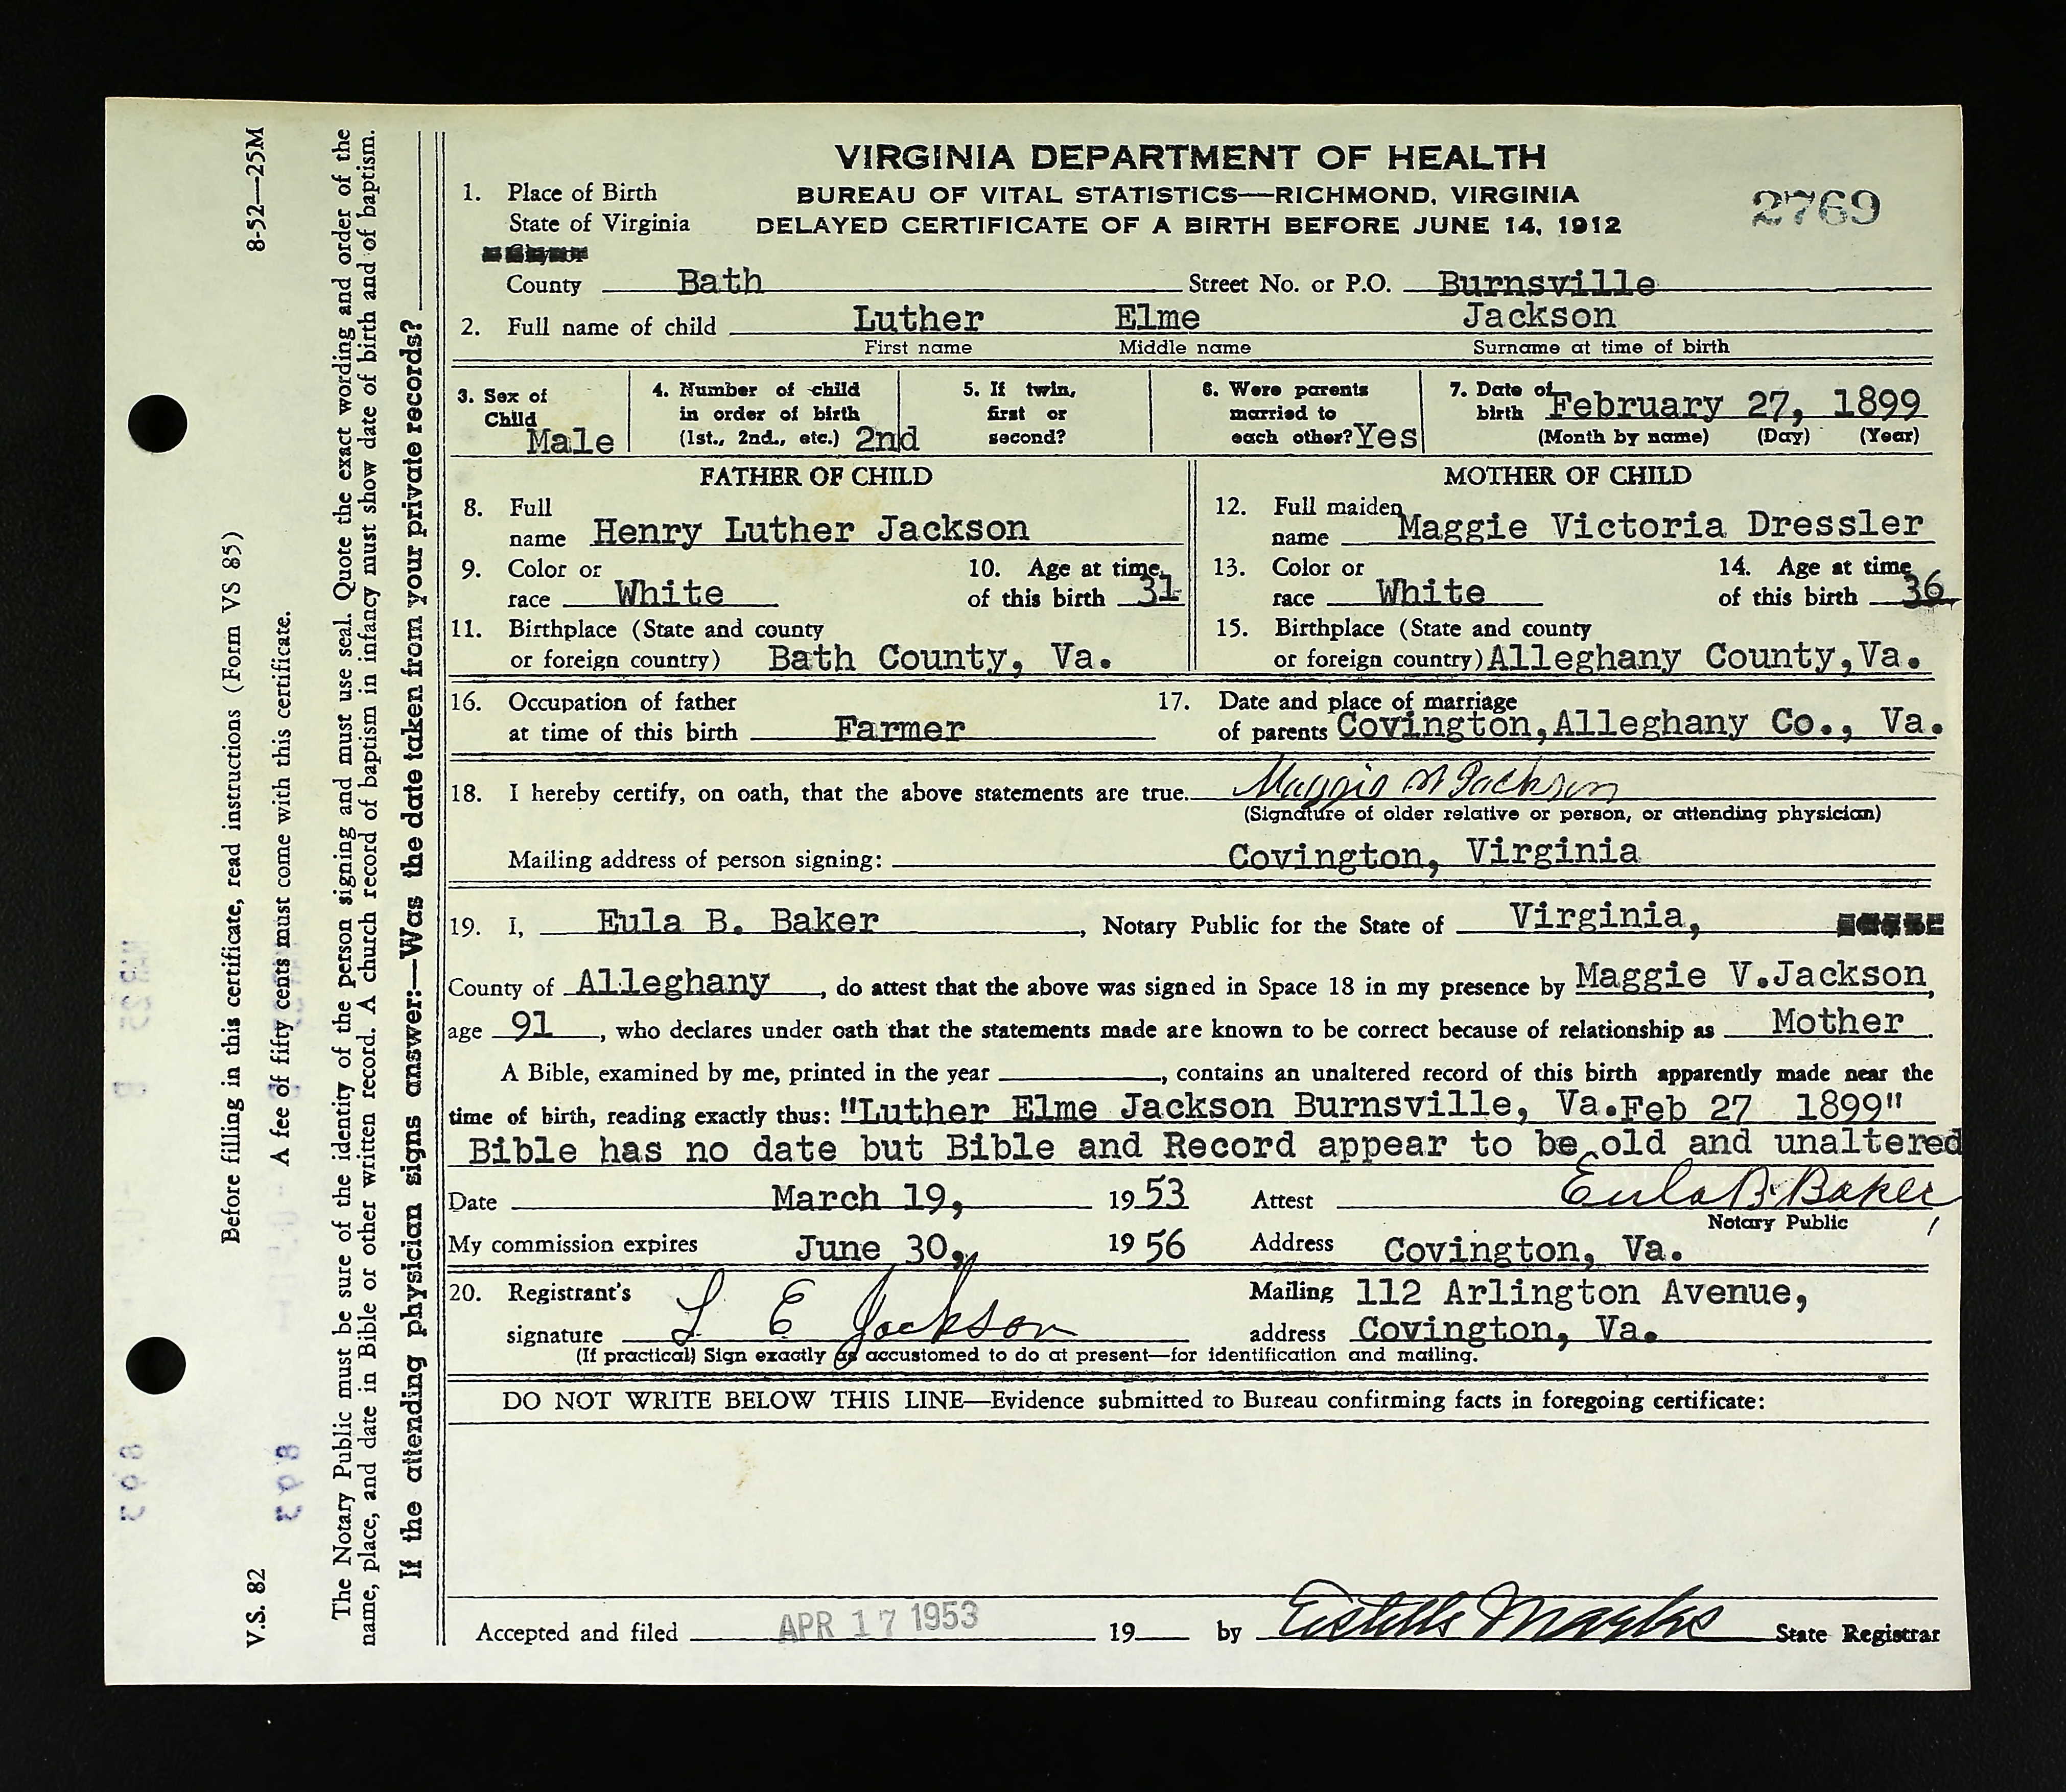 VIRGINIA DEPARTMENT OF HEALTH
BUREAU OF VITAL STATISTICS—RICHMOND, VIRGINIA
DELAYED CERTIFICATE OF A BIRTH BEFORE JUNE 14, 1912
2769
1. Place of Birth
State of Virginia
County Bath Street No. or P.O. Burnsville
2. Full name of child Luther Elme Jackson
First name Middle name Surname at time of birth
3. Sex of Child Male
4. Number of child in order of birth (1st., 2nd., etc.) 2nd
5. If twin, first or second?
6. Were parents married to each other? Yes
7. Date of birth February 27, 1899
(Month by name) (Day) (Year)
FATHER OF CHILD
8. Full name Henry Luther Jackson
9. Color or race White
10. Age at time of this birth 31
11. Birthplace (State and county or foreign country) Bath County, Va.
MOTHER OF CHILD
12. Full maiden name Maggie Victoria Dressler
13. Color or race White
14. Age at time of this birth 36
15. Birthplace (State and county or foreign country) Alleghany County, Va.
16. Occupation of father at time of this birth Farmer
17. Date and place of marriage of parents Covington, Alleghany Co., Va.
18. I hereby certify, on oath, that the above statements are true. Maggie Jackson
(Signature of older relative or person, or attending physician)
Mailing address of person signing: Covington, Virginia
19. I, Eula B. Baker, Notary Public for the State of Virginia,
County of Alleghany, do attest that the above was signed in Space 18 in my presence by Maggie V. Jackson,
age 91, who declares under oath that the statements made are known to be correct because of relationship as Mother.
A Bible, examined by me, printed in the year, contains an unaltered record of this birth apparently made near the
time of birth, reading exactly thus: "Luther Elme Jackson Burnsville, Va. Feb 27 1899"
Bible has no date but Bible and Record appear to be old and unaltered
Date March 19, 1953 Attest Eula B. Baker
Notary Public
My commission expires June 30, 1956 Address Covington, Va.
20. Registrant's signature L E Jackson
Mailing address 112 Arlington Avenue,
Covington, Va.
(If practical) Sign exactly as accustomed to do at present—for identification and mailing.
DO NOT WRITE BELOW THIS LINE—Evidence submitted to Bureau confirming facts in foregoing certificate:
Accepted and filed APR 17 1953 19 by Estelle State Registrar
V.S. 82
8-52—25M
Before filling in this certificate, read instructions (Form VS 85)
A fee of fifty cents must come with this certificate.
The Notary Public must be sure of the identity of the person signing and must use seal. Quote the exact wording and order of the
name, place, and date in Bible or other written record. A church record of baptism in infancy must show date of birth and of baptism.
If the attending physician signs answer:—Was the date taken from your private records?